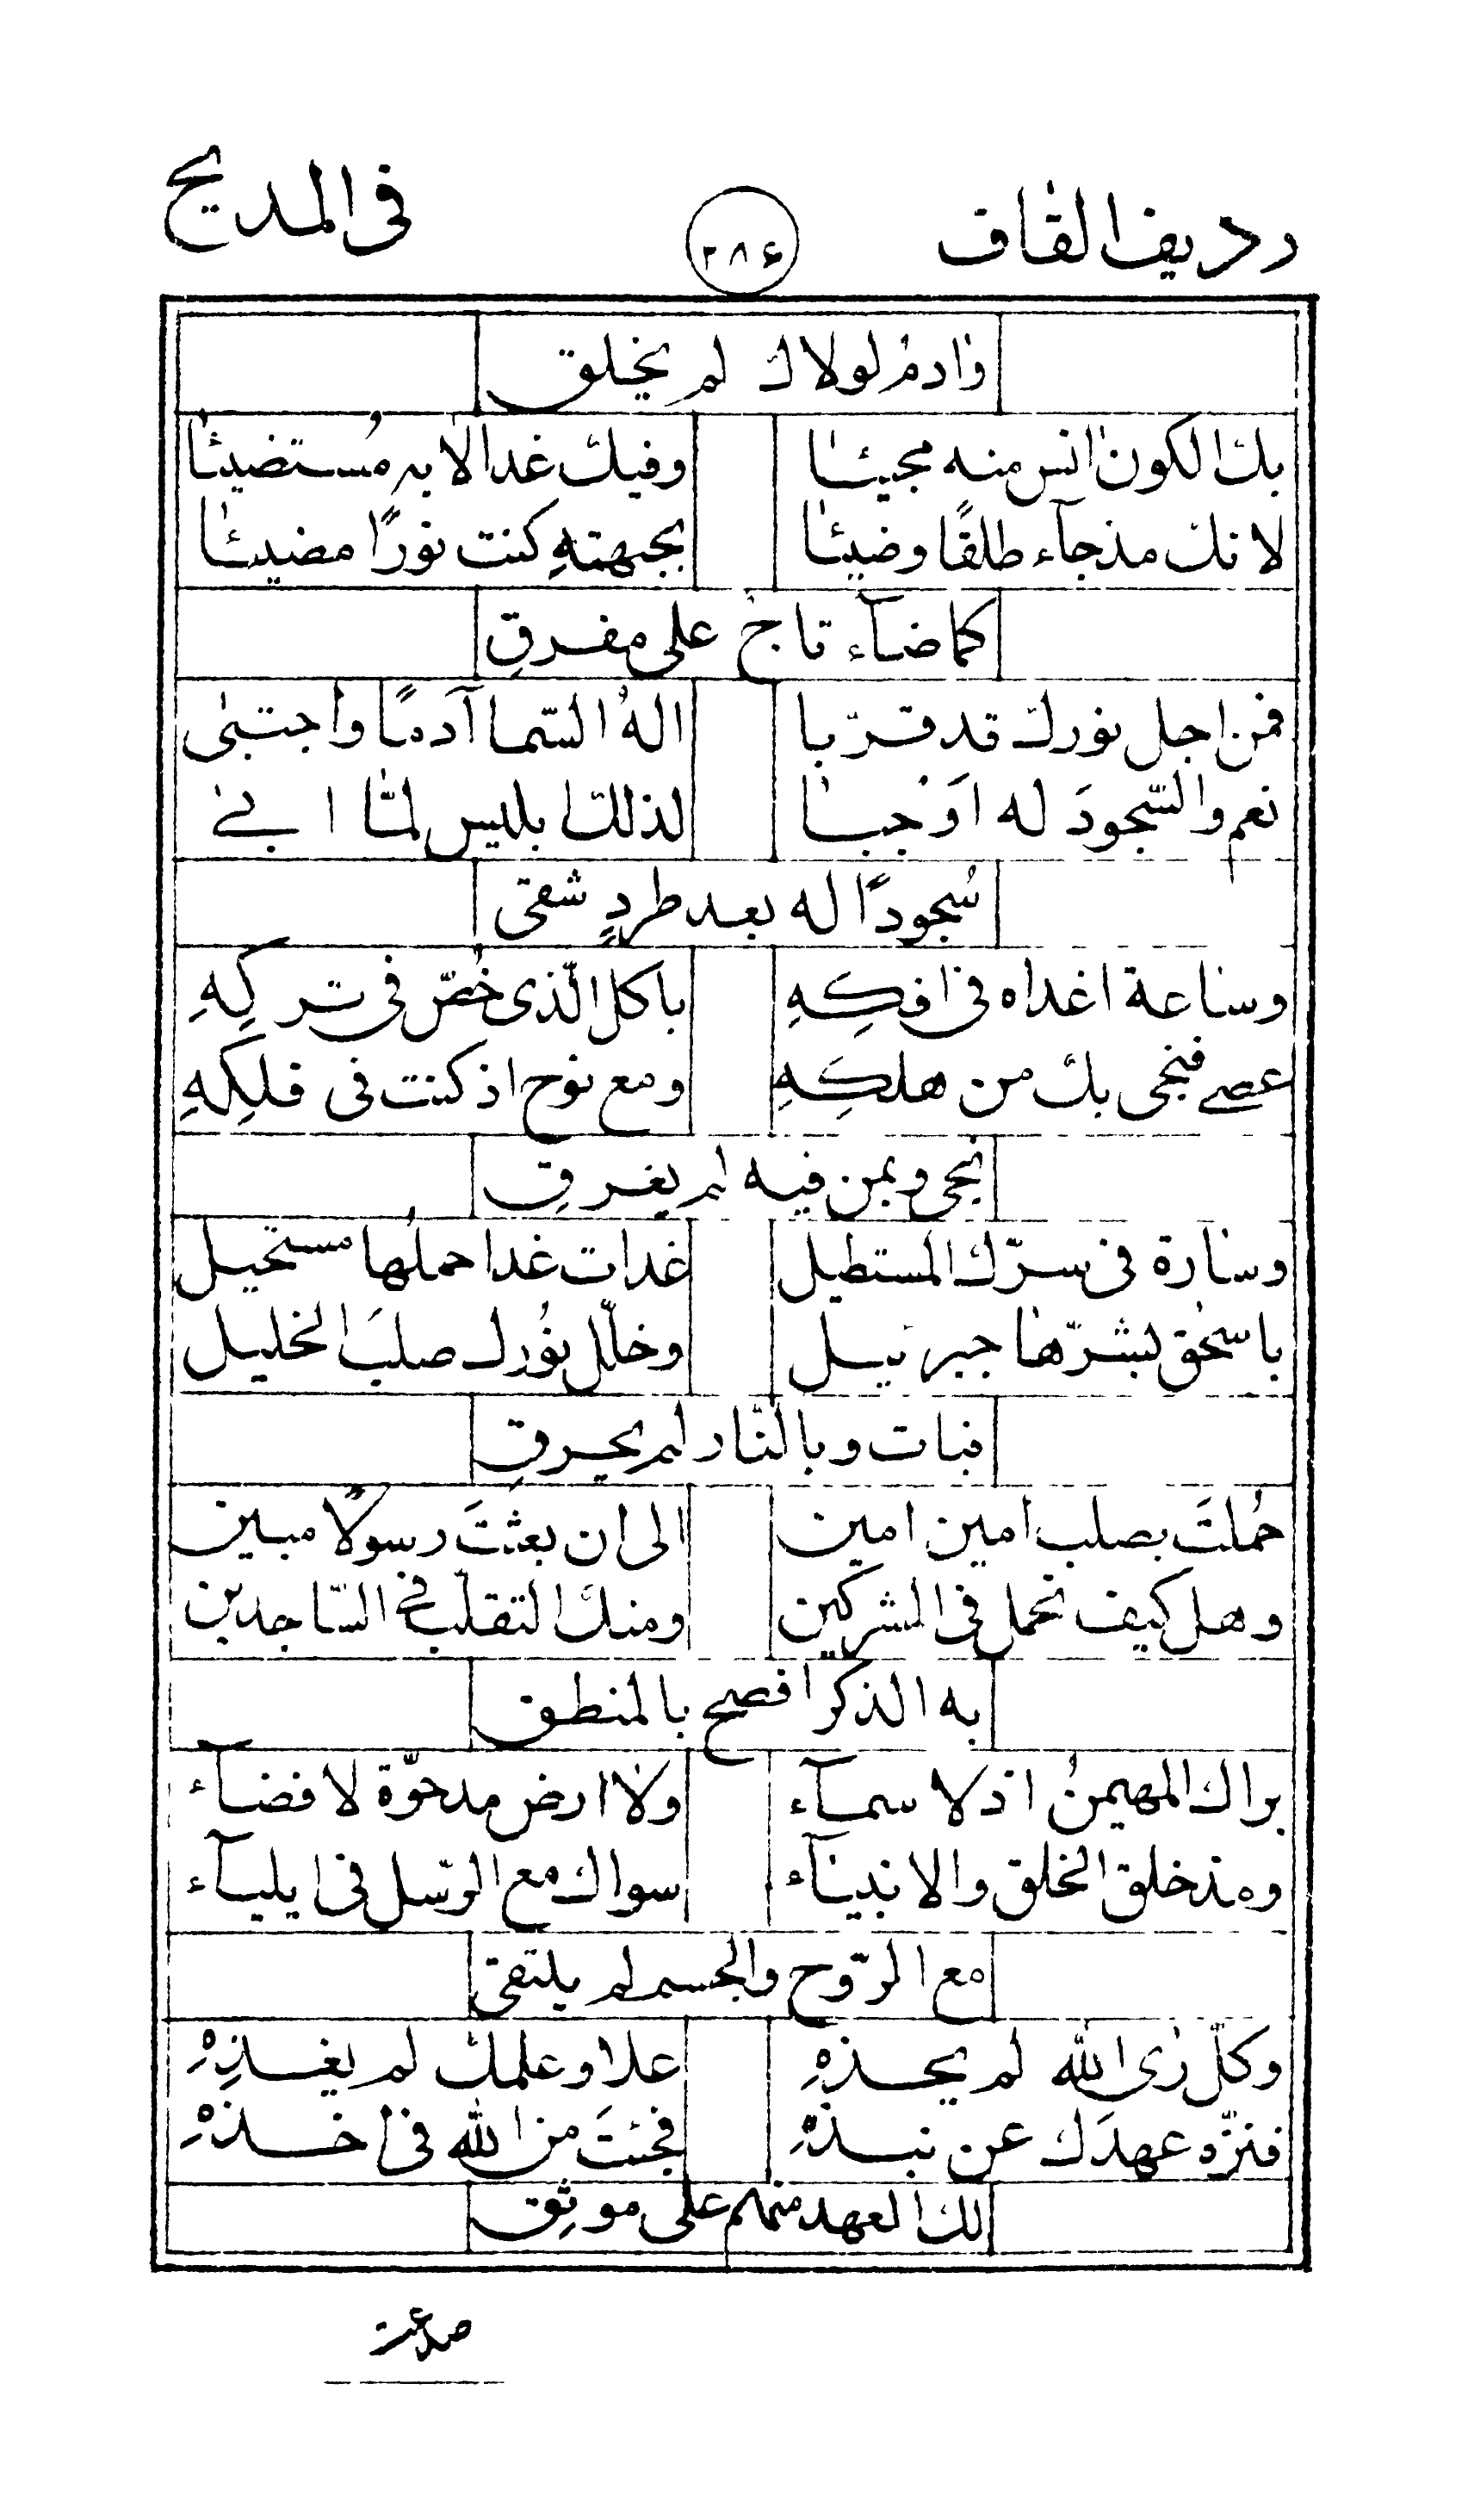 رديف القاف ٢٨٤ في المديح
وادم لولاك لم يخلق
بك الكون انس منه مجيئا وفيك غدا لا به مُستضيئا
لانك مذ جآء طلقًا وضيئا بجبهتهِ كنت نورًا مضيئا
كما ضآء تاج على مفرقِ
فمن اجل نورك قد قرّبا الهُ السّما آدمًا واجتبى
نعم والسّجودَ له اوجبا لذلك ابليس لمّا ابى
سُجودًا له بعد طردٍ شقى
وساعة اغداه في افكِهِ باكل الّذى خُصّ في تركِهِ
عصى فنجى بك من هلكِهِ ومع نوح اذ كنت فى فلكِهِ
نجى وبمن فيه لم يغرقِ
وسارة فى سرّك المستطيل غدات غدا حملُها مستحيل
باسحٰق بشرّها جبرئيل وخلّل نُورك صلبَ الخليل
فبات وبالنّار لم يحرقِ
حُملتَ بصلب امين امين الى ان بعثتَ رسولًا مبين
وهل كيف تحمل فى المشركين ومنك التقلّب في السّاجدين
به الذكر افصح بالمنطق
براك المهيمنُ اذ لا سمآء ولا ارض مدحوّة لا فضآء
ومذ خلق الخلق والانبيآء سواك مع الرّسل فى ايليآء
مع الرّوح والجسم لم يلتقى
وكلّ رأى الله لم يحذهِ علا وعلمك لم يغذِهِ
فنزّه عهدَك عن نبذهِ فجئتَ من الله فى اخذهِ
لك العهد منهم على موثِق